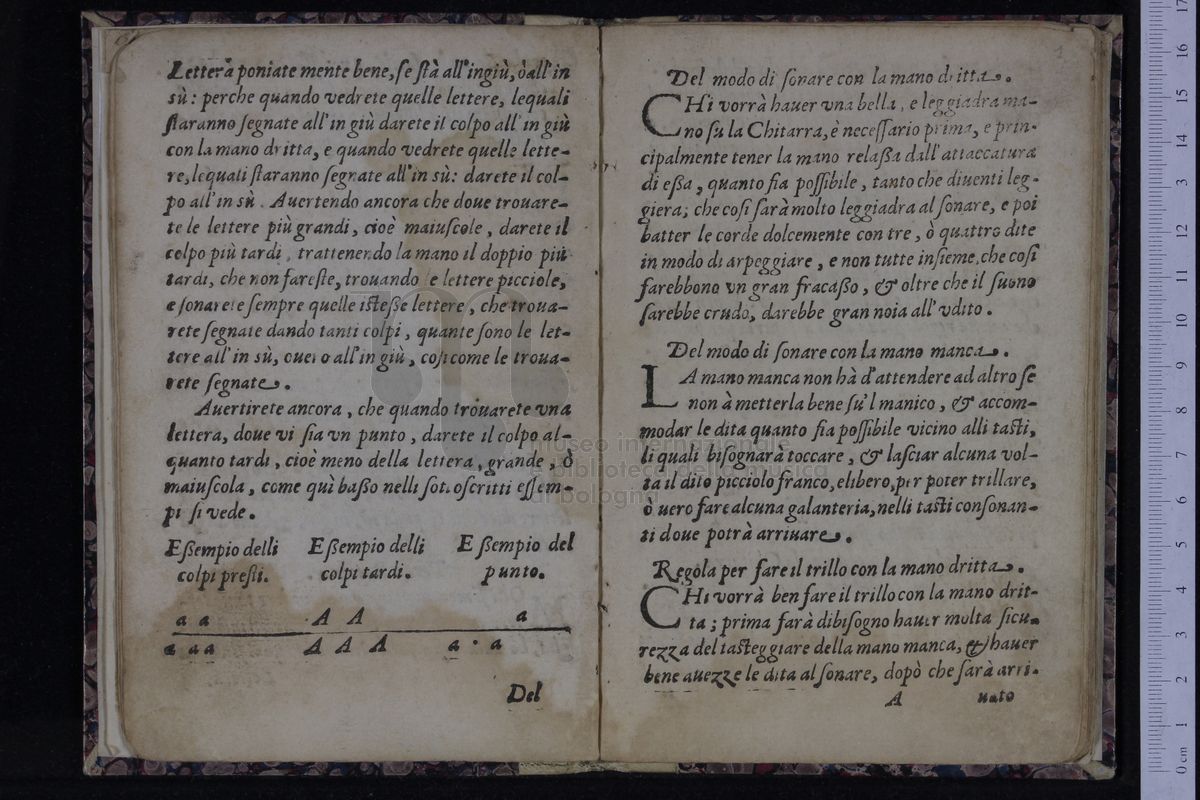 Lettera poniate mente bene, se stà all'ingiù, ò all'in
sù: perche quando vedrete quelle lettere, lequali
staranno segnate all'in giù darete il colpo all'in giù
con la mano dritta, e quando vedrete quelle lette-
re, lequali staranno segnate all'in sù: darete il col-
po all'in sù. Auertendo ancora che doue trouare-
te le lettere più grandi, cioè maiuscole, darete il
colpo più tardi, trattenendo la mano il doppio più
tardi, che non fareste, trouando e lettere picciole,
e sonarete sempre quelle istesse lettere, che troua-
rete segnate dando tanti colpi, quante sono le let-
tere all'in sù, ouero all'in giù, cosi come le troua-
rete segnate.
Auertirete ancora, che quando trouarete vna
lettera, doue vi sia vn punto, darete il colpo al-
quanto tardi, cioè meno della lettera, grande, ò
maiuscola, come quì basso nelli sotoscritti essem-
pi si vede.
Essempio delli Essempio delli Essempio del
colpi presti. colpi tardi. punto.
a a A A a
a a a A A A a · a
Del
1
Del modo di sonare con la mano dritta.
CHi vorrà hauer vna bella, e leggiadra ma-
no su la Chitarra, è necessario prima, e prin-
cipalmente tener la mano relassa dall'attaccatura
di essa, quanto sia possibile, tanto che diuenti leg-
giera; che cosi sarà molto leggiadra al sonare, e poi
batter le corde dolcemente con tre, ò quattro dite
in modo di arpeggiare, e non tutte insieme, che cosi
farebbono vn gran fracasso, & oltre che il suono
sarebbe crudo, darebbe gran noia all'vdito.
Del modo di sonare con la mano manca.
LA mano manca non hà d'attendere ad altro se
non à metterla bene su'l manico, & accom-
modar le dita quanto sia possibile vicino alli tasti,
li quali bisognarà toccare, & lasciar alcuna vol-
ta il dito picciolo franco, elibero, per poter trillare,
ò uero fare alcuna galanteria, nelli tasti consonan-
ti doue potrà arriuare.
Regola per fare il trillo con la mano dritta.
CHi vorrà ben fare il trillo con la mano drit-
ta; prima farà dibisogno hauer molta sicu-
rezza del tasteggiare della mano manca, & hauer
bene auezze le dita al sonare, dopò che sarà arri-
A uato
museo internazionale
e biblioteca della musica
di bologna